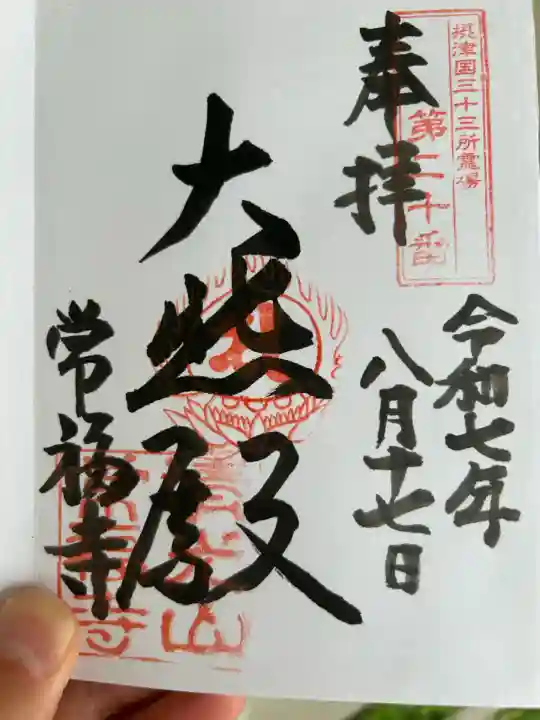 摂津国三十三所霊場
第二十番
奉拝
令和七年
八月十七日
大悲殿
常福寺